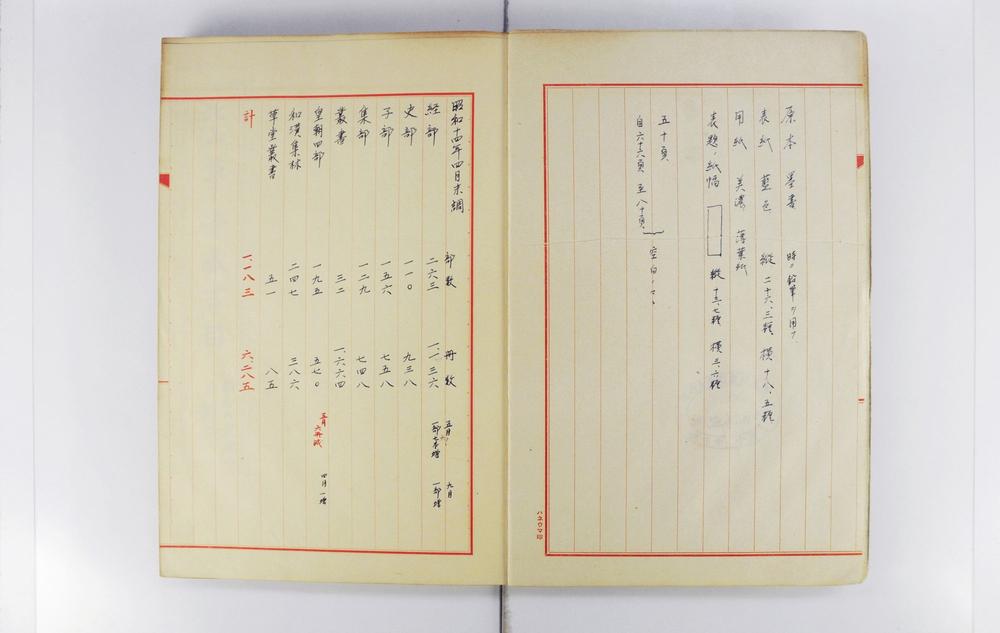 原本 墨書 時ニ鉛筆ヲ用フ
表紙 藍色 縦 二十六、三糎 横 十八、五糎
用紙 美濃 薄葉紙
表題、紙幅 縦 十五、七糎 横 三、六糎
五十頁
自六十六頁 至八十頁 空白
ハネウマ印
昭和十四年四月末調 部数 冊数
経部 二六三 一、一三六 五月 九月 一部増
史部 一一〇 九三八
子部 一五六 七五八
集部 一二九 七四八
叢書 三二 一、六六四
皇朝四部 一九五 五七〇 五月 六冊減 四月一増
和漢集林 二四七 三八六
華堂叢書 五一 八五
計 一、一八三 六、二八五